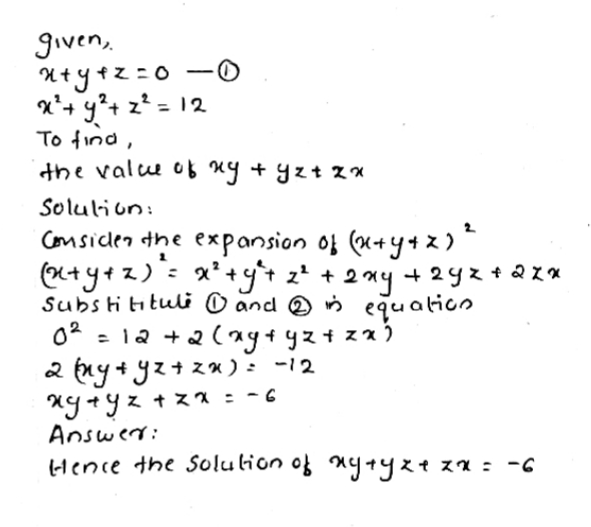 given,
x+y+z=0 —①
x²+y²+z² = 12
To find,
the value of xy + yz + zx
Solution:
Consider the expansion of (x+y+z)²
(x+y+z)² = x²+y²+z² + 2xy + 2yz + 2zx
Substitute ① and ② in equation
0² = 12 + 2(xy+yz+zx)
2(xy+yz+zx) = -12
xy+yz+zx = -6
Answer:
Hence the solution of xy+yz+zx = -6